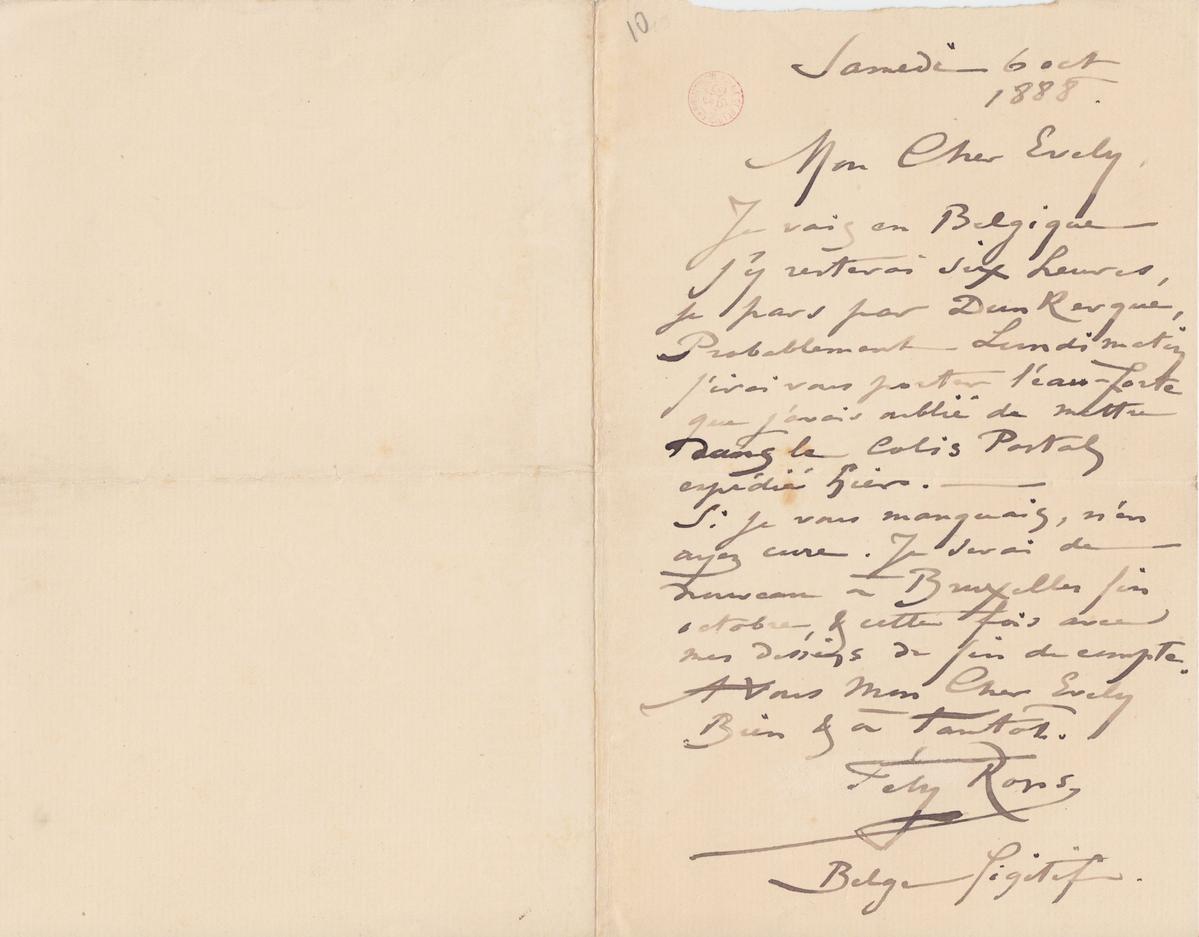 10
Samedi 6 oct
1888.
Mon Cher Evely,
Je vais en Belgique
j'y resterai six heures,
je pars par DunKerque,
Probablement Lundi matin
j'irai vous porter l'eau-forte
que j'avais oublié de mettre
dans le Colis Postal
expédié hier.
Si je vous manquais, n'en
ayez cure. Je serai de
nouveau à Bruxelles fin
octobre, & cette fois avec
mes dessins de fin de compte.
A Vous Mon Cher Evely
Bien & à tantôt.
Fély Rops
Belge figitif.